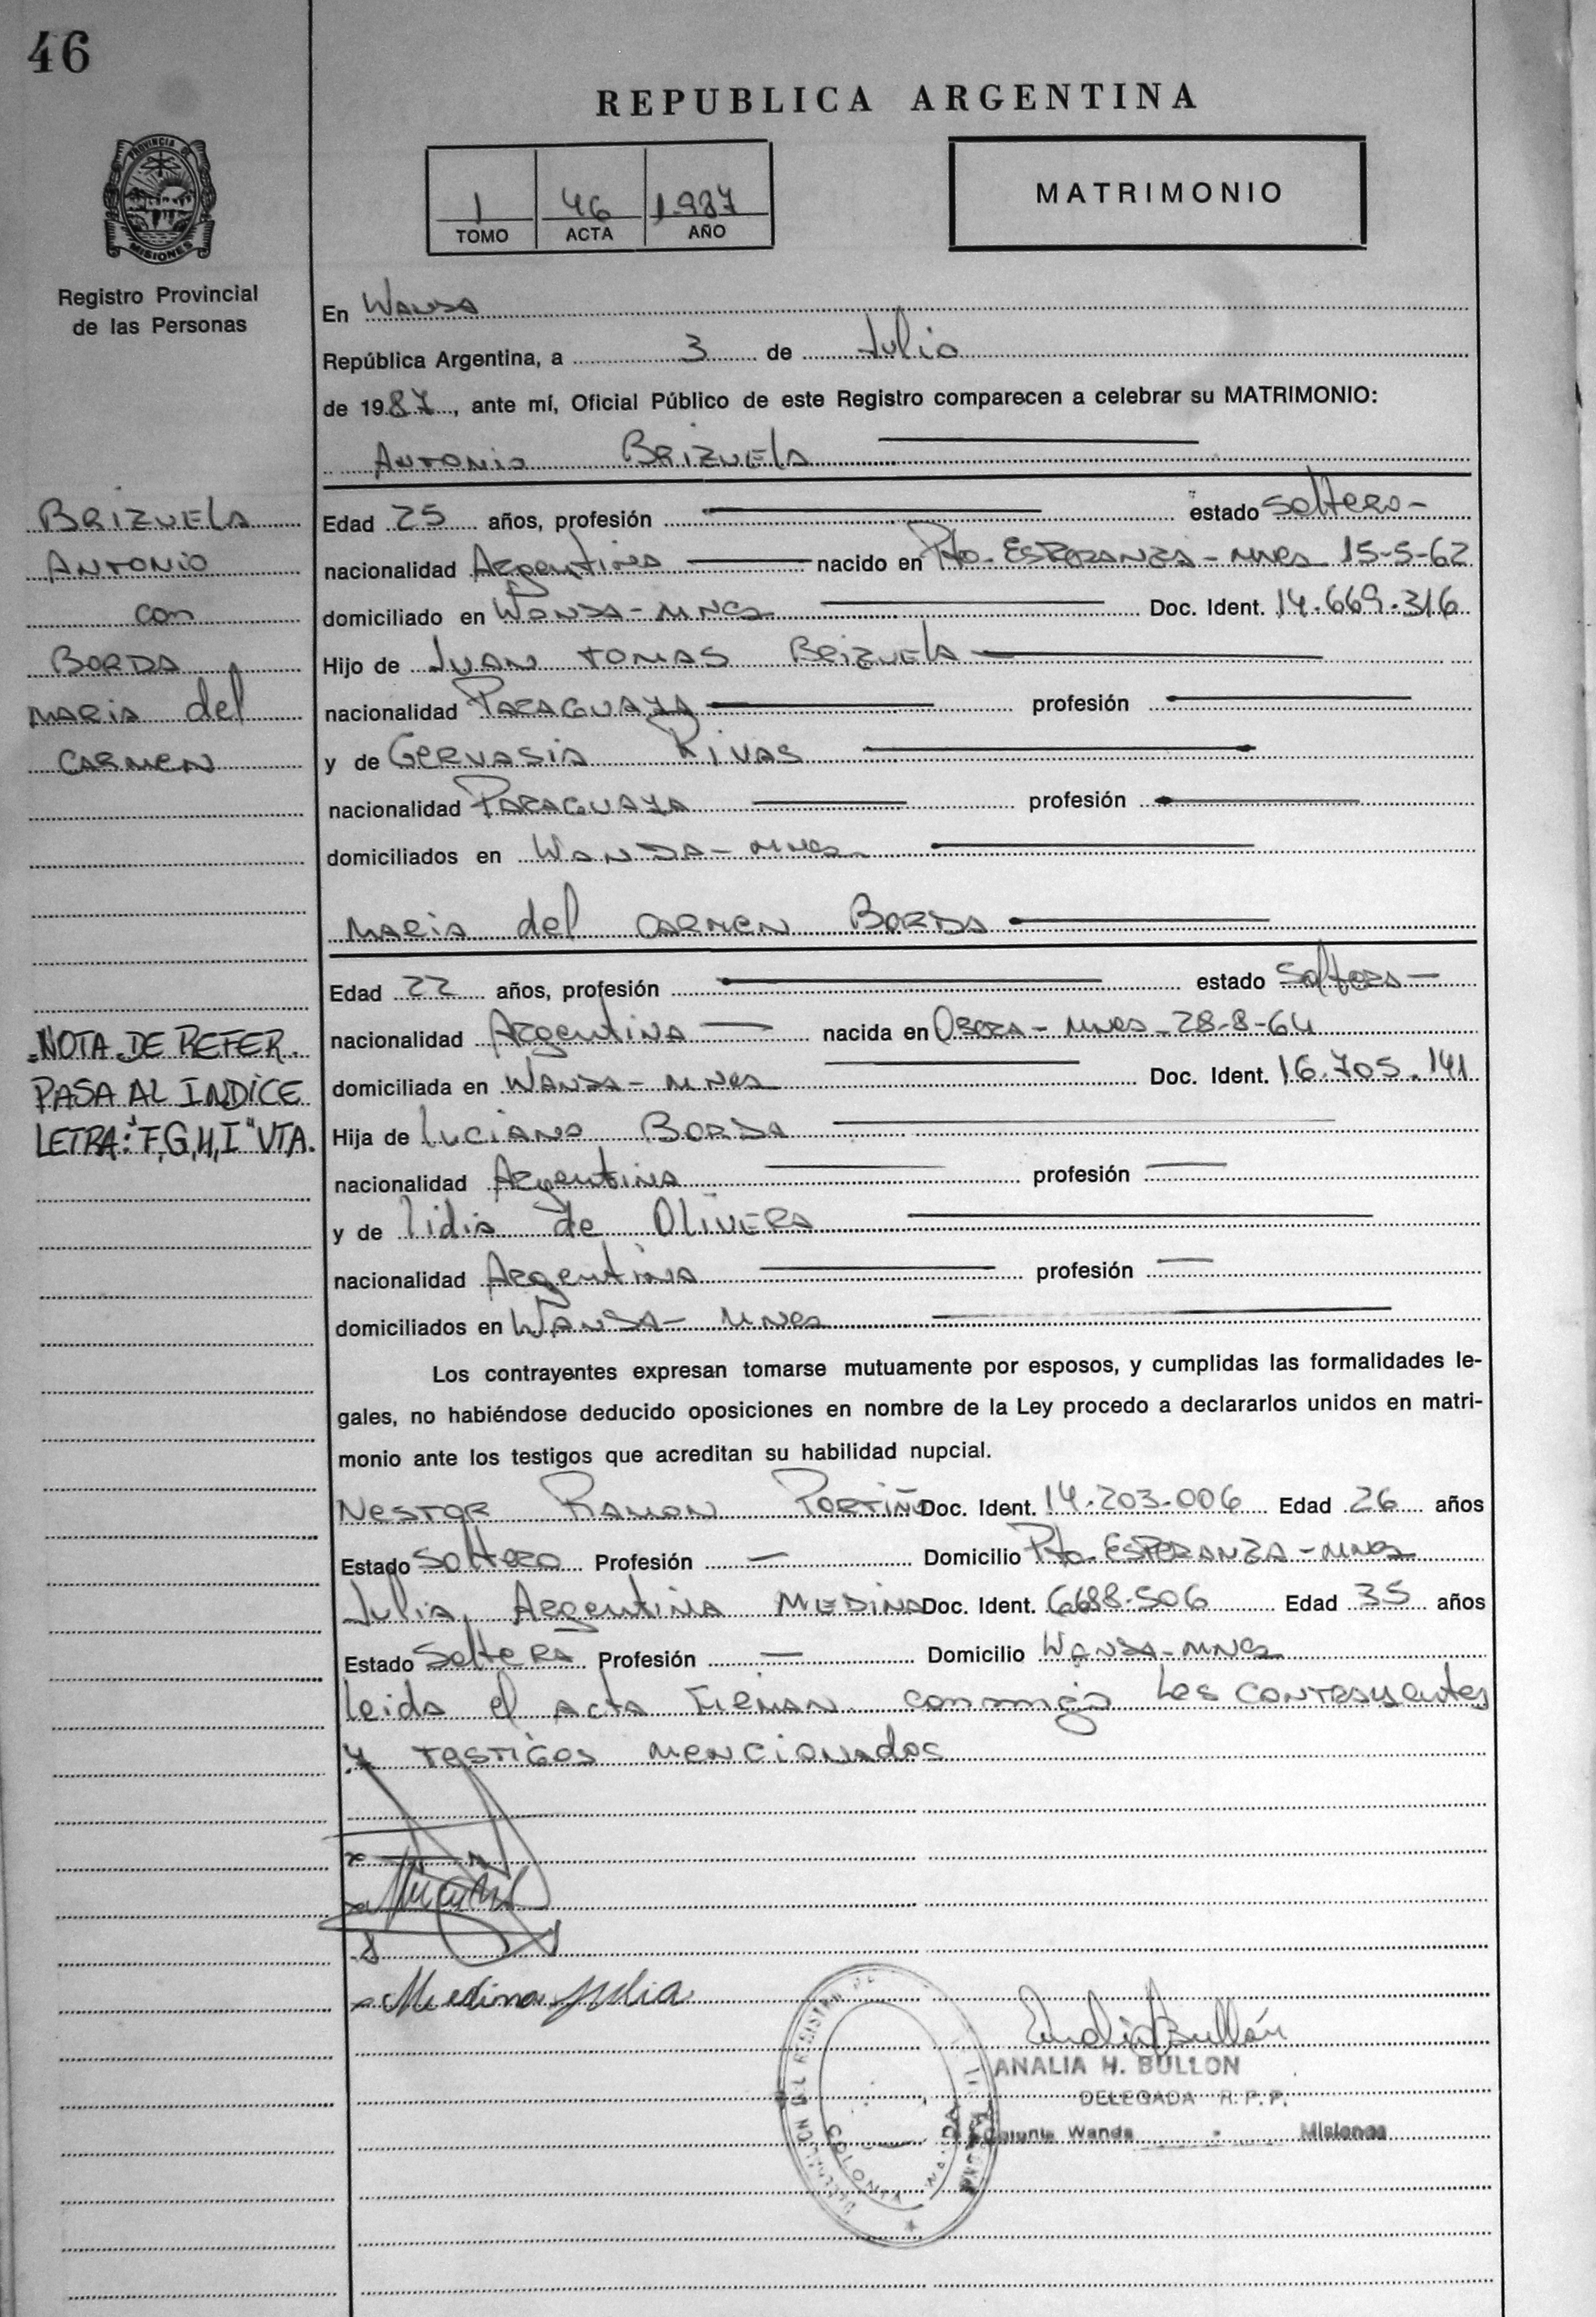 46
REPUBLICA ARGENTINA
PROVINCIA DE
MISIONES
Registro Provincial
de las Personas
1 46 1.987
TOMO ACTA AÑO
MATRIMONIO
En Wanda
República Argentina, a 3 de Julio
de 1987, ante mí, Oficial Público de este Registro comparecen a celebrar su MATRIMONIO:
Antonio Brizuela
BRIZUELA
ANTONIO
con
BORDA
MARIA del
CARMEN
Edad 25 años, profesión estado soltero-
nacionalidad Argentina nacido en Pto. ESPERANZA - MNES 15-5-62
domiciliado en WANDA - MNES Doc. Ident. 14.669.316
Hijo de JUAN TOMAS BRIZUELA
nacionalidad PARAGUAYA profesión
y de GERVASIA RIVAS
nacionalidad PARAGUAYA profesión
domiciliados en WANDA - MNES
MARIA del CARMEN BORDA
Edad 22 años, profesión estado Soltera
nacionalidad Argentina nacida en OBERA - MNES - 28-8-64
domiciliada en WANDA - MNES Doc. Ident. 16.705.141
Hija de LUCIANO BORDA
nacionalidad Argentina profesión
y de Lidia de OLIVERA
nacionalidad Argentina profesión
domiciliados en WANDA - MNES
NOTA DE REFER.
PASA AL INDICE
LETRA: "F,G,H,I" VTA.
Los contrayentes expresan tomarse mutuamente por esposos, y cumplidas las formalidades le-
gales, no habiéndose deducido oposiciones en nombre de la Ley procedo a declararlos unidos en matri-
monio ante los testigos que acreditan su habilidad nupcial.
NESTOR RAMON PORTIÑO Doc. Ident. 14.203.006 Edad 26 años
Estado Soltero Profesión — Domicilio Pto. ESPERANZA - MNES
Julia Argentina MEDINA Doc. Ident. 6.688.506 Edad 35 años
Estado Soltera Profesión — Domicilio WANDA - MNES
Leida el acta FIRMAN conmigo los contrayentes
y testigos mencionados
Medina Julia
ANALIA H. BULLON
DELEGADA R.P.P.
Colonia Wanda Misiones
COLONIA WANDA